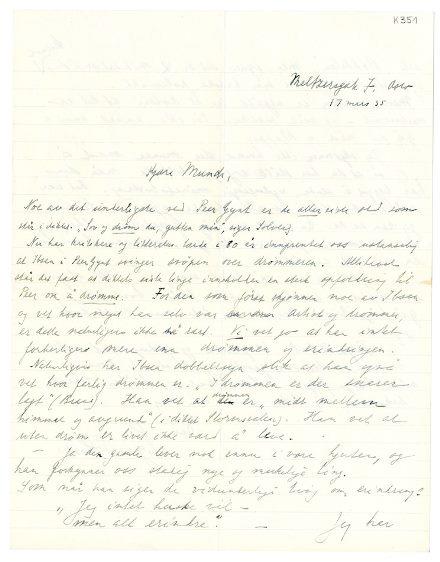 K351
Meltzersgt. 7, Oslo
17 mars 35
Kjære Munch,
Noe av det underligste ved Peer Gynt er de aller siste ord som
står i diktet. "Sov og drøm du, gutten min", siger Solveig.
Nu har kritikere og litterater i 80 år innprentet oss
at Ibsen i Peer Gynt svinger svøpen over drømmeren. Allikevel
står det fast at diktets siste linje inneholder en sterk opfordring til
Peer om å drømme. For den som først skjønner noe av Ibsen
og vet hvor meget han selv var og drømmer,
er dette naturligvis ikke så rart. Vi vet jo at han intet
forherliger mere enn drømmen og erindringen.
Naturligvis har Ibsen dobbeltsyn slik at han også
vet hvor farlig drømmen er. "I drømmen er der snarer
lagt" (Brand). Han vet at den er "midt mellem
himmel og avgrund" (i diktet Stormsvalen). Han vet at
uten drøm er livet ikke værd å leve.
— Ja den gamle lever nok iblandt våre hjerter, og
han forkynner oss stadig nye og merkelige ting.
Som når han siger de vidunderlige ting om erindring?
"Jeg intet huske vil —
men alt erindre". —
Jeg har